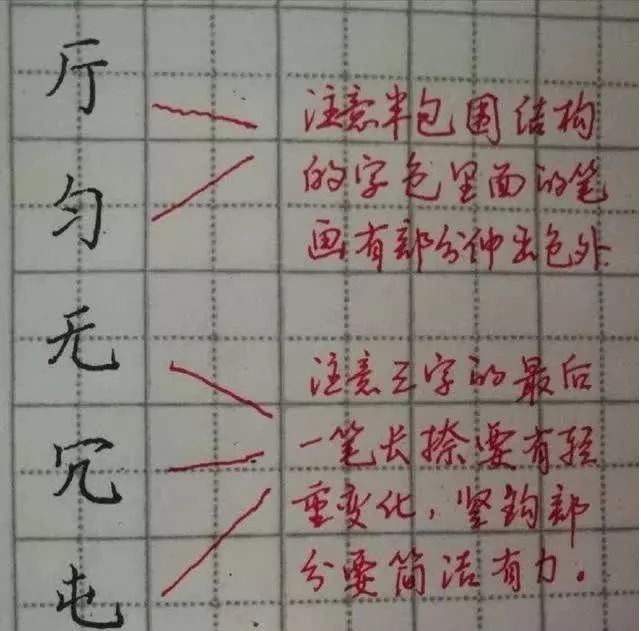 厅
匀
无
冗
屯
注意半包围结构
的字包里面的笔
画有部分伸出包外
注意三字的最后
一笔长捺要有轻
重变化,竖钩部
分要简洁有力。